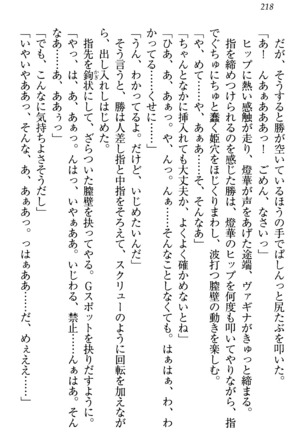 218
だが、そうすると勝が空いているほうの手でぱしんっと尻たぶを叩いた。
「あ！　んああああっ！　ごめん、なさいっ」
ヒップに熱い感触が走り、燈華が声をあげた途端、ヴァギナがきゅっと締まる。
指を締めつけられるのを感じた勝は、燈華のヒップを何度も叩いてやりながら、指
でぐちゅにちゅと蠢く姫穴をほじくりまわし、波打つ膣壁の動きを楽しむ。
「や、めて……ああ……そ、そんなあ」
「ちゃんとなかに挿入れても大丈夫か、よくよく確かめないとね」
「ひ、あ、あああっ。や、んっ。んん……そんなことしなくても。はぁはぁ、わ、わ
かってる……くせに……」
「うん、わかってるよ。だけど、いじめたいんだ」
そう言うと、勝は人差し指と中指をそろえて、スクリューのように回転を加えなが
ら、出し入れしはじめた。
指先を鉤状にして、ざらついた膣壁を抉る。Gスポットを抉りだすように。
「やっ、はあ、あああっ。んはっ、いやぁああ。いじわる、禁止……んはあ。そん
なっ、あ、ああぁっ」
「でも、こんなに気持ちよさそうだし」
「いやいやああっ、そんな、あ、あぁあっ。っはぁああ……だ、めぇええ……」